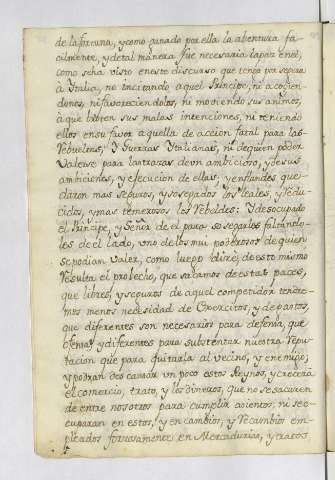 de la fortuna, y como ganado por ella la abertura fa-
cilmente, y de tal manera fue necesaria la paz en el,
como se ha visto en este discurso que tenga por segura
a Italia, no incitando a quel Principe, ni acogien-
donos, ni favoreciendolos, ni moviendo sus animos,
a que labren sus malas intenciones, ni teniendo
ellos en su favor aquella de accion fatal para las
Rebueltas, y Guerras Italianas, ni de quien poder
Valerse para las trazas de un ambicioso, y de sus
ambiciones, y execucion de ellas; y en fundes que-
daron mas seguros, y sosegados los leales, y redu-
cidos, y mas temerosos los Rebeldes: Y desocupado
el Principe, y Señor de el para sosegarles faltando-
les de el lado, uno de los mui poderosos de quien
se podian valer, como luego dirè; de esto mismo
Resulta el provecho, que sacamos de estas paces,
que libres, y seguros de aquel competidor tendre-
mos menos necesidad de Exercitos, y de gastos,
que diferentes son necesarios para defensa, que
ofensa y diferentes para substentar nuestra Repu-
tacion que para quitarla al vecino, y enemigo;
y podran descansar un poco estos Reynos, y crecerá
el comercio, trato, y los dineros, que no se sacaren
de entre nosotros para cumplir asientos, ni se o-
cuparan en estos, y en cambios, y Recambios em-
pleados forzosamente en Mercadurias, y tratos